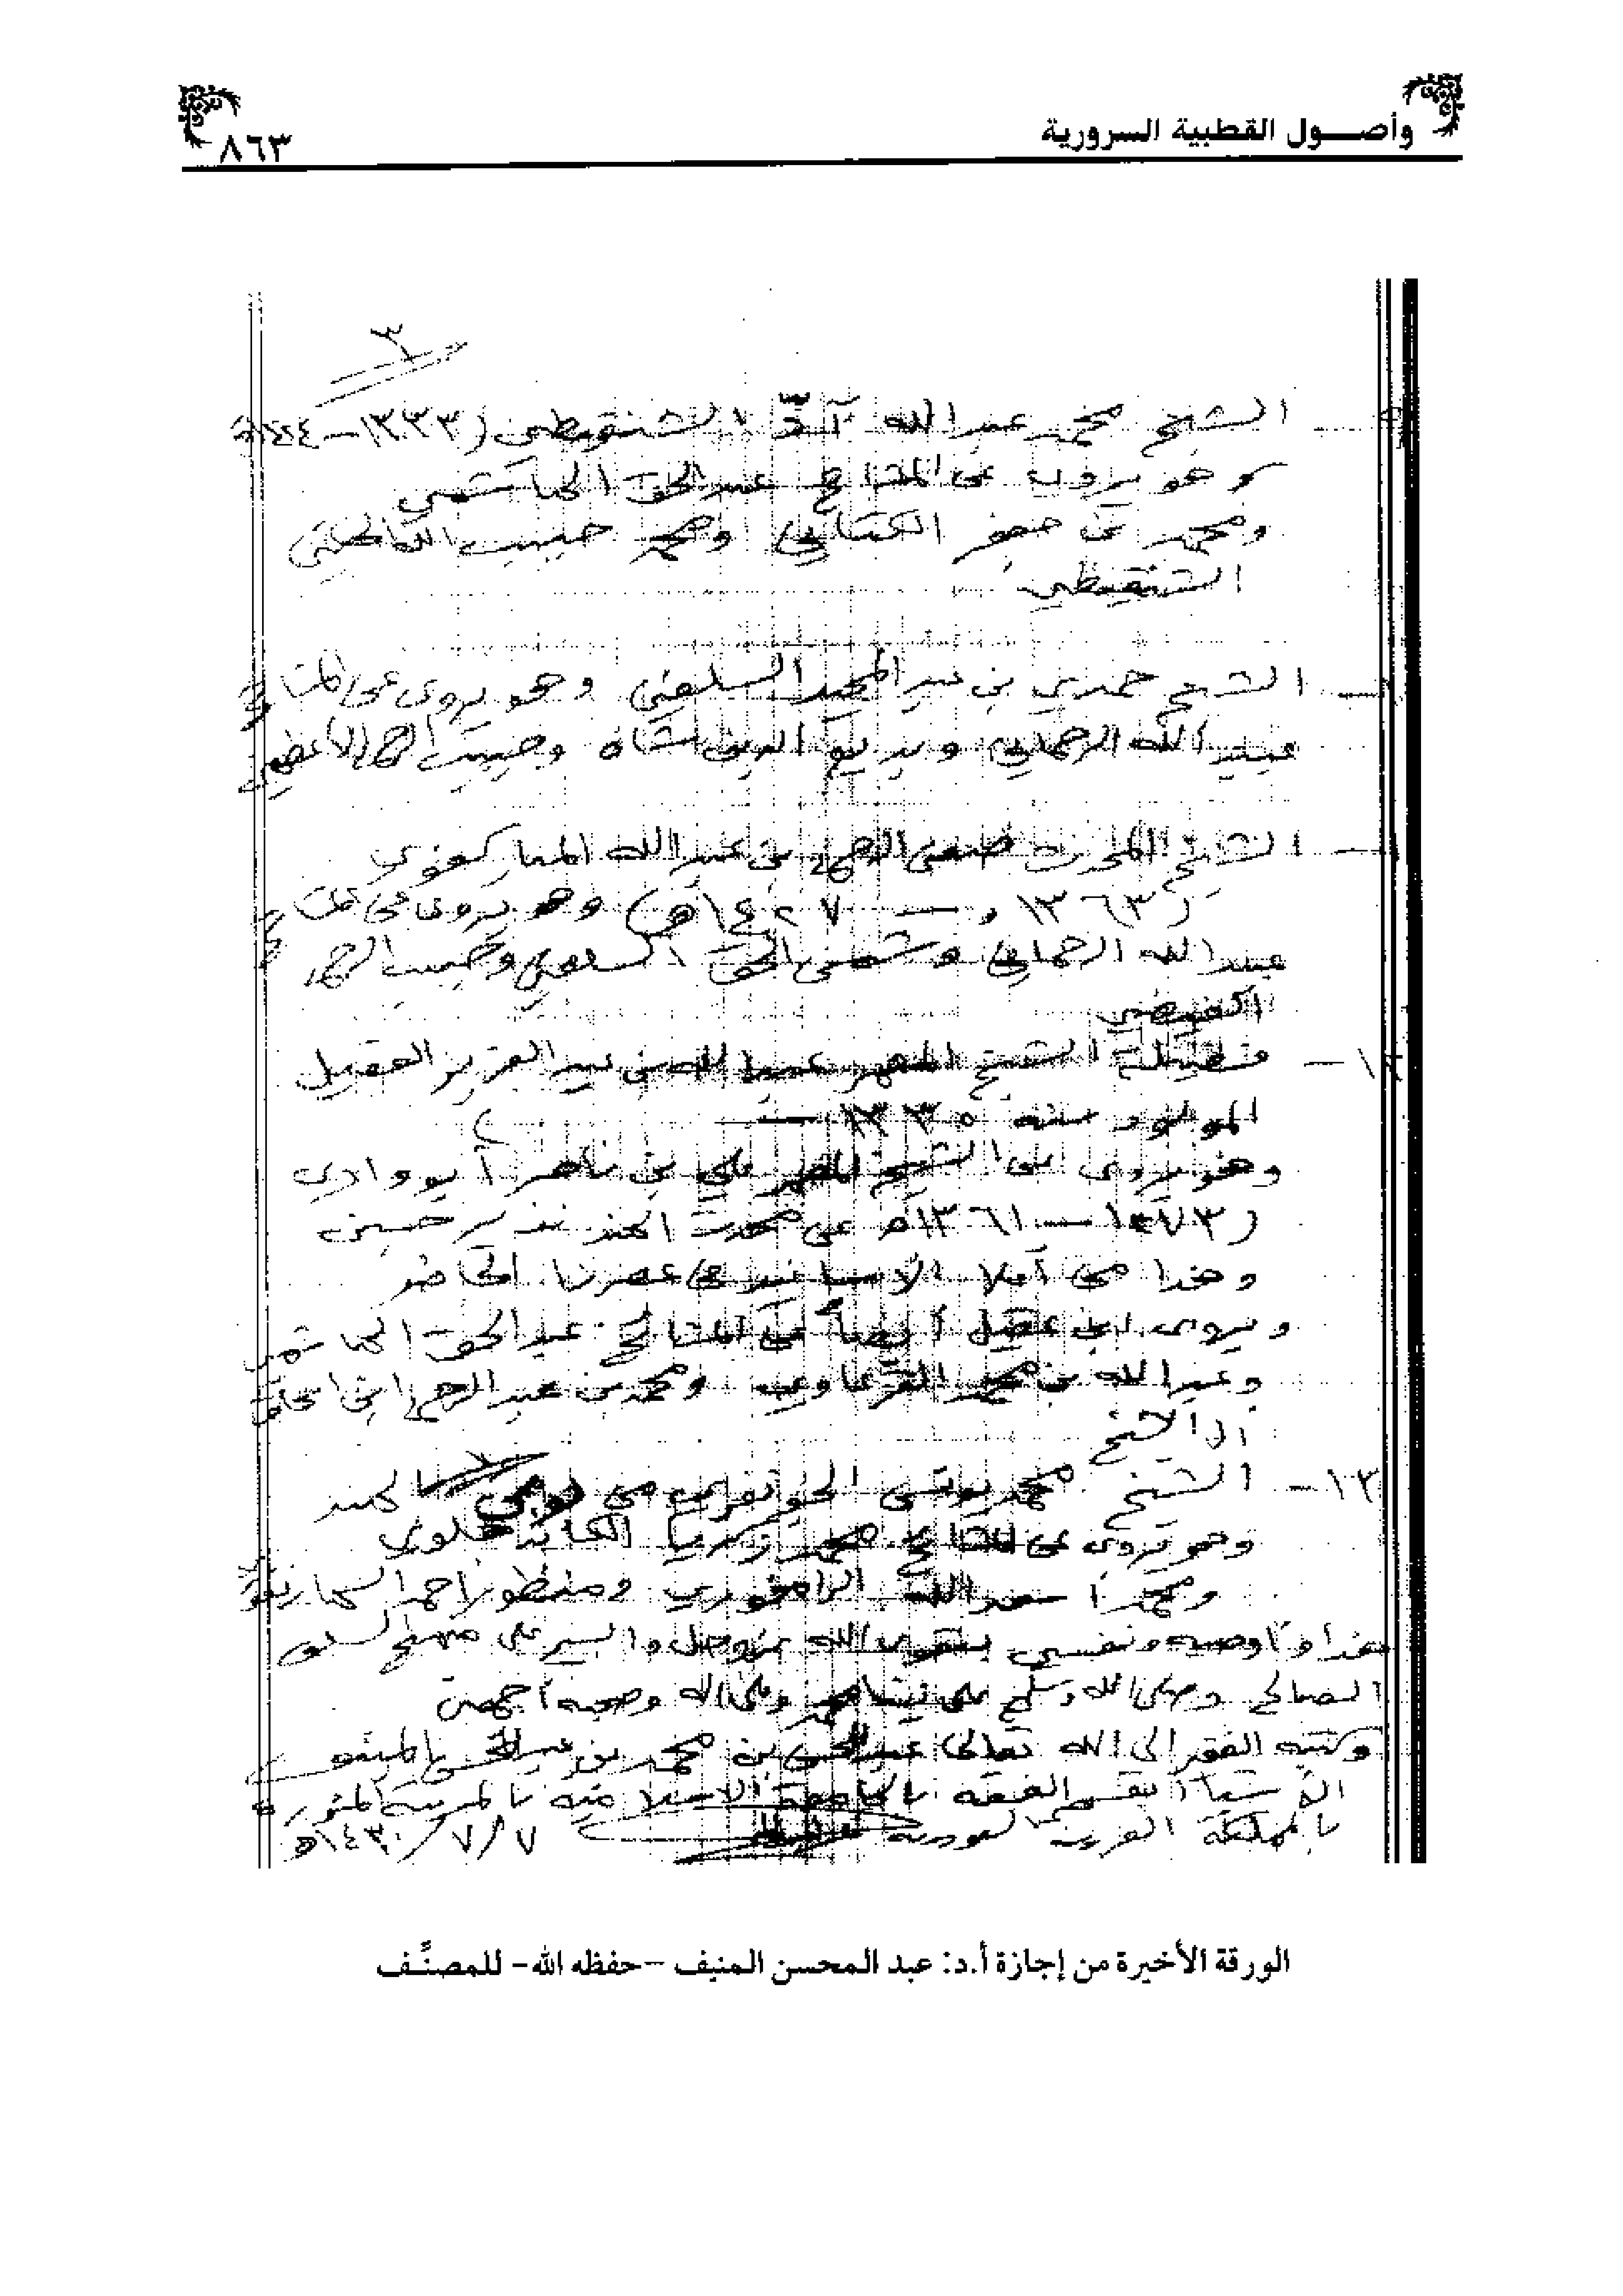 وأصـــول القطبية السرورية
٨٦٣
٣
الشيخ محمد عبد الله آدّ الشنقيطي (١٣٣٣ـ
وهو يروي عن المشايخ عبد الحق الهاشمي
ومحمد بن جعفر الكتاني ومحمد حبيب الله
الشنقيطي
الشيخ حمدي بن عبد المجيد السلفي وهو يروي عن المشايخ
عبيد الله الرحماني وبديع الدين شاه وحبيب الرحمن الأعظمي
الشيخ المحدث صفي الرحمن بن عبد الله المباركفوري
(١٣٦٣ هـ ـ ١٤٢٧هـ) وهو يروي عن المشايخ
عبيد الله الرحماني وشمس الحق السلفي وحبيب الرحمن
الفيضي
١٢ـ فضيلة الشيخ المعمر عبد الله بن عبد العزيز العقيل
المولود سنة ١٣٣٥ ـ )
وهو يروي عن الشيخ المعمر علي بن ناصر أبو وادي
(١٢٧٣ ـ ١٣٦١هـ عن محدث الهند نذير حسين
وهذا من أعلا الأسانيد في عصرنا الحاضر
ويروي ابن عقيل أيضاً عن المشايخ عبد الحق الهاشمي
وعبد الله بن محمد القرعاوي ومحمد بن عبد الرحمن بن إسحاق
آل الشيخ
١٣ـ الشيخ محمد يونس الجونفوري من الهند
وهو يروي عن المشايخ محمد زكريا الكاندهلوي
ومحمد أسعد الله الرامفوري ومنظور أحمد السهارنفوري
هذا وأوصيه ونفسي بتقوى الله عز وجل والسير على منهج السلف
الصالح وصلى الله وسلم على نبينا محمد وعلى آله وصحبه أجمعين
وكتبه الفقير إلى الله تعالى عبد المحسن بن محمد بن عبد المحسن المنيف
الأستاذ بقسم الفقه بالجامعة الإسلامية بالمدينة المنورة
بالمملكة العربية السعودية ٧/٧/١٤٣٠هـ
الورقة الأخيرة من إجازة أ.د: عبد المحسن المنيف –حفظه الله– للمصنَّـف